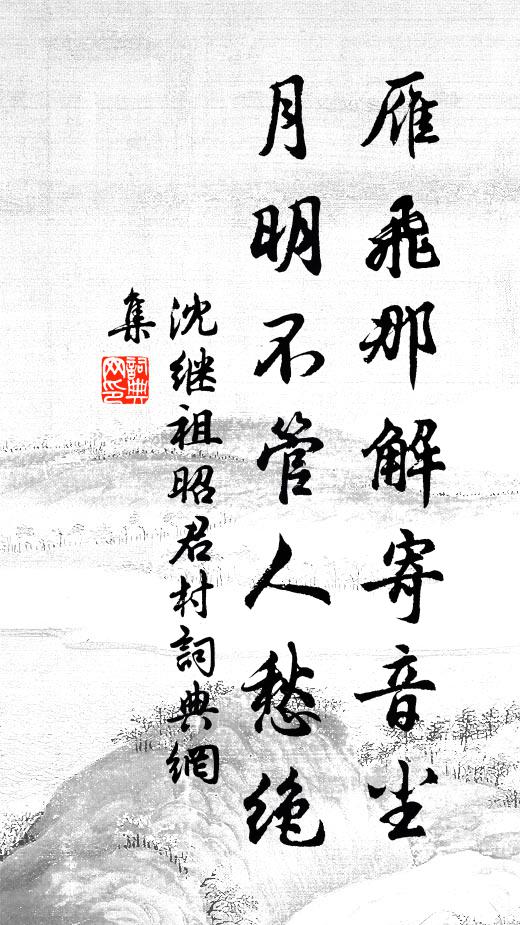 雁飛那解寄音尘
月明不管人愁绝
沈继祖昭君村詞典網
集
詞典
网印